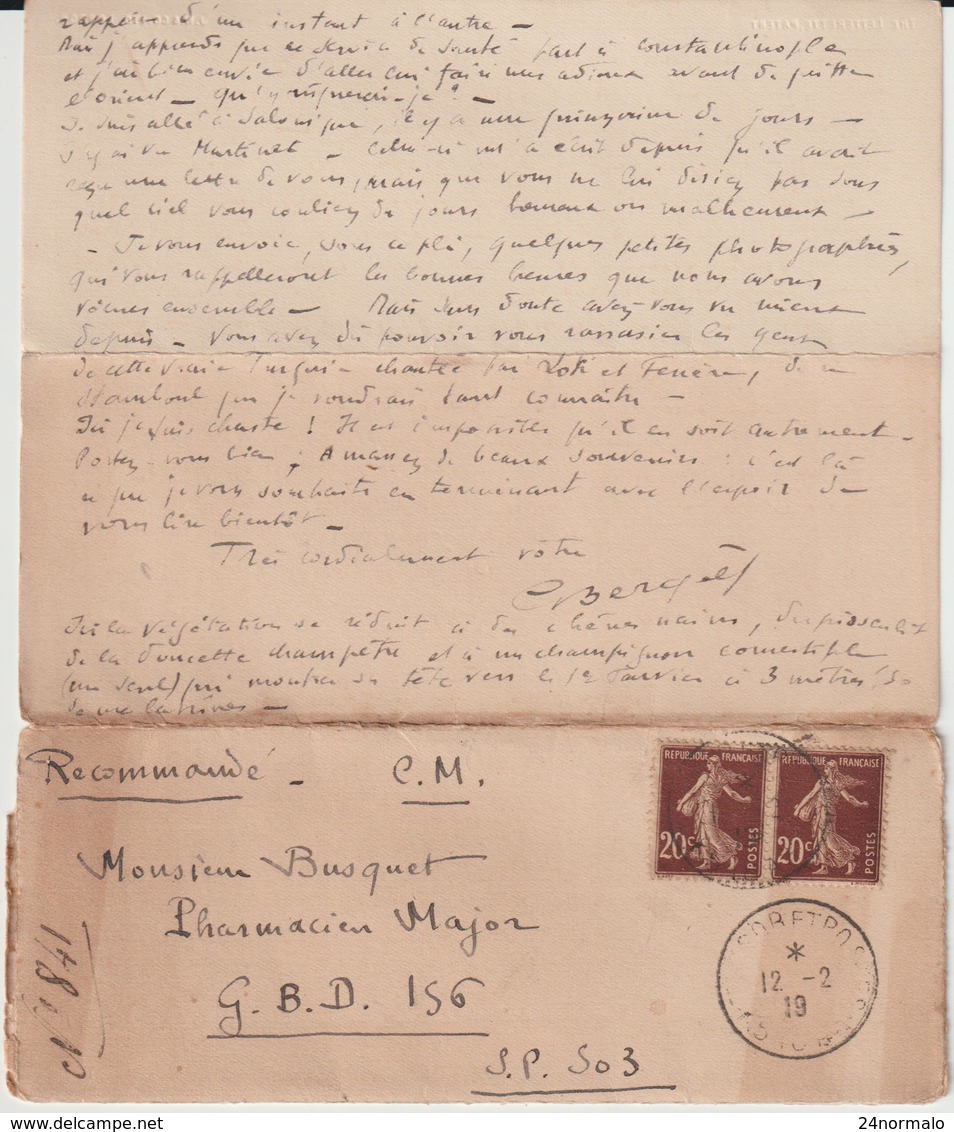 rappeler d'un instant à l'autre –
Mais j'apprends que ce service de santé part à Constantinople
et j'ai bien envie d'aller lui faire mes adieux avant de quitter
l'orient – qu'y –
Je suis allé à Salonique, il y a une quinzaine de jours –
J'y ai vu Martinet – Celui-ci m'a écrit depuis qu'il avait
reçu une lettre de vous, mais que vous ne lui disiez pas sous
quel ciel vous couliez des jours heureux ou malheureux –
– Je vous envoie, sous ce pli, quelques petites photographies,
qui vous rappelleront les bonnes heures que nous avons
vécues ensemble – Mais sans doute avez vous vu mieux
depuis – Vous avez dû pouvoir vous rassasier les yeux
de cette vraie Turquie chantée par Loti et Ferrère, de ce
Stamboul que je voudrais tant connaître –
Ici je suis chaste ! Il est impossible qu'il en soit autrement –
Portez-vous bien ; Amassez de beaux souvenirs : c'est là
ce que je vous souhaite en terminant avec l'espoir de
vous lire bientôt –
Très cordialement votre
Ici la végétation se réduit à des chênes nains, du pissenlit
de la doucette champêtre et à un champignon comestible
(un seul) qui montra sa tête vers le 1er Janvier à 3 mètres
de nos latrines –
Recommandé – C.M.
REPUBLIQUE FRANÇAISE 20c POSTES
REPUBLIQUE FRANÇAISE 20c POSTES
Monsieur Busquet
Pharmacien Major
G.B.D. 156
S.P. 503
N° 841
*
12 -2
19
24normalo
delcampe.net